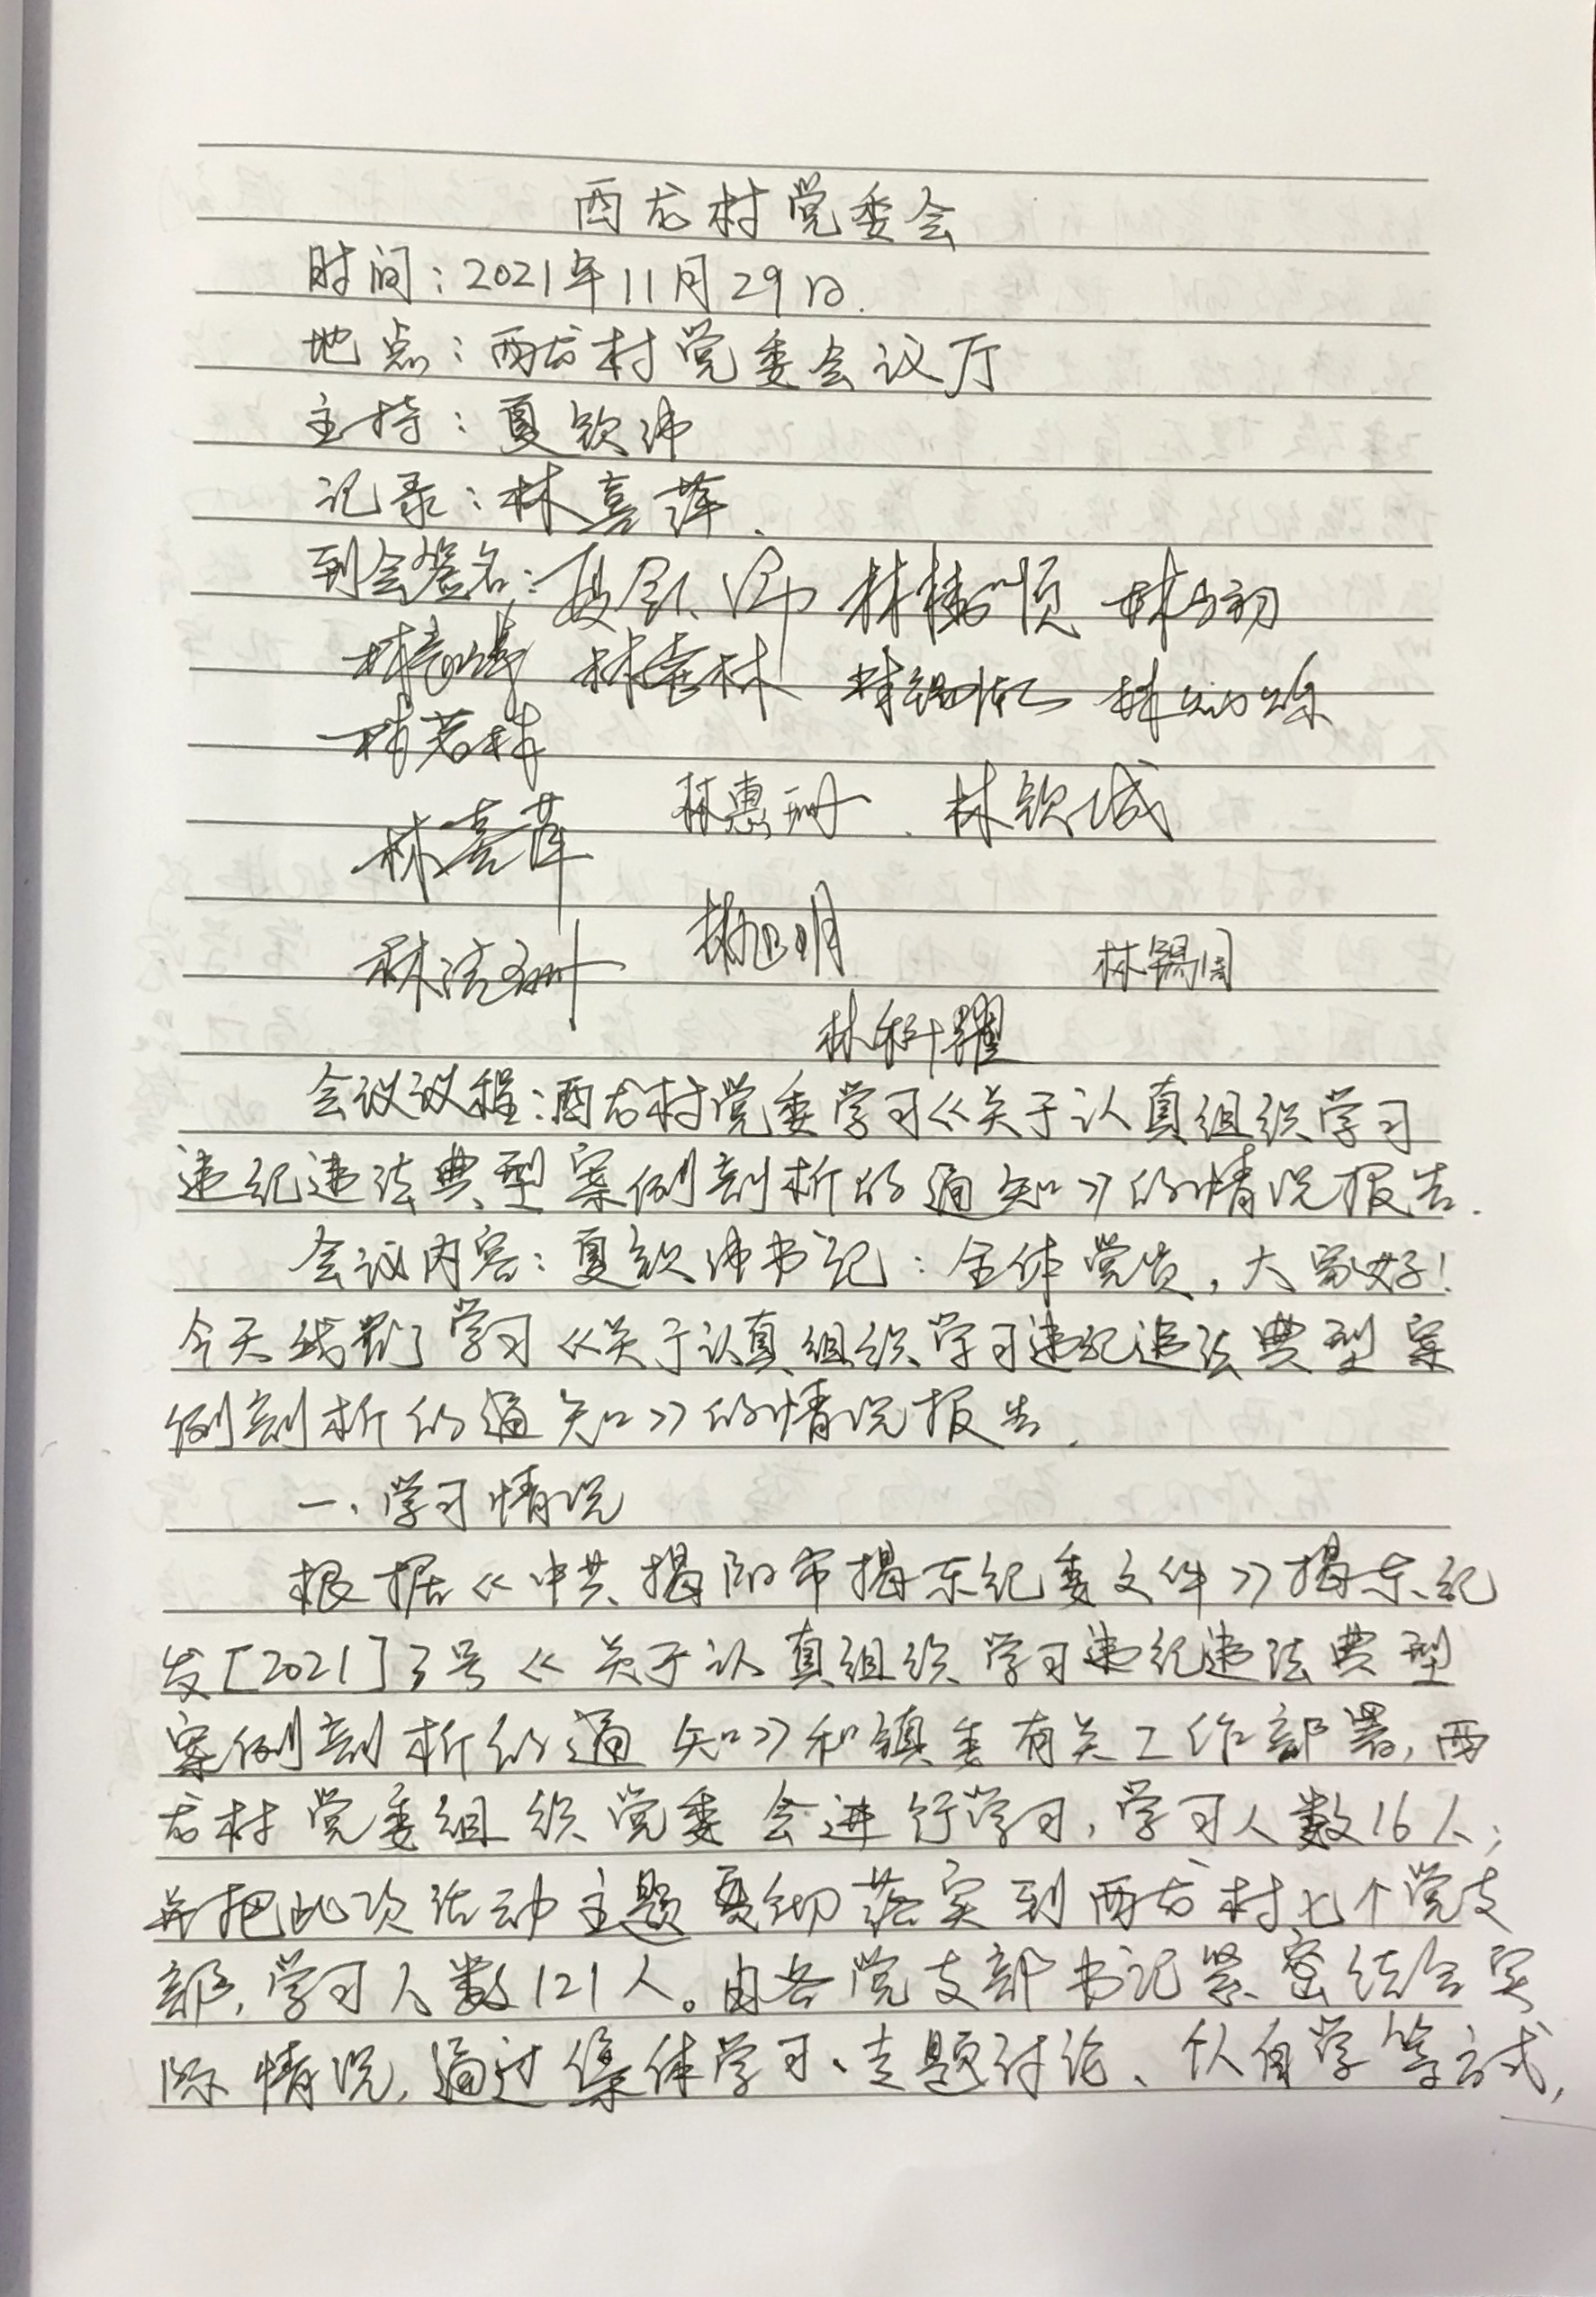 西龙村党委会
时间：2021年11月29日.
地点：西龙村党委会议厅
主持：夏钦沛
记录：林喜萍.
到会签名：
林惠珊 林钦城
林喜萍
林旭明 林锡周
林洁珊
林科耀
会议议程：西龙村党委学习《关于认真组织学习
违纪违法典型案例剖析的通知》的情况报告.
会议内容：夏钦沛书记：全体党员，大家好！
今天我们学习《关于认真组织学习违纪违法典型案
例剖析的通知》的情况报告.
一、学习情况
根据《中共揭阳市揭东纪委文件》揭东纪
发[2021]3号《关于认真组织学习违纪违法典型
案例剖析的通知》和镇委有关工作部署，西
龙村党委组织党委会进行学习，学习人数16人；
并把此次活动主题贯彻落实到西龙村七个党支
部，学习人数121人。由各党支部书记紧密结合实
际情况，通过集体学习、专题讨论、个人自学等方式，